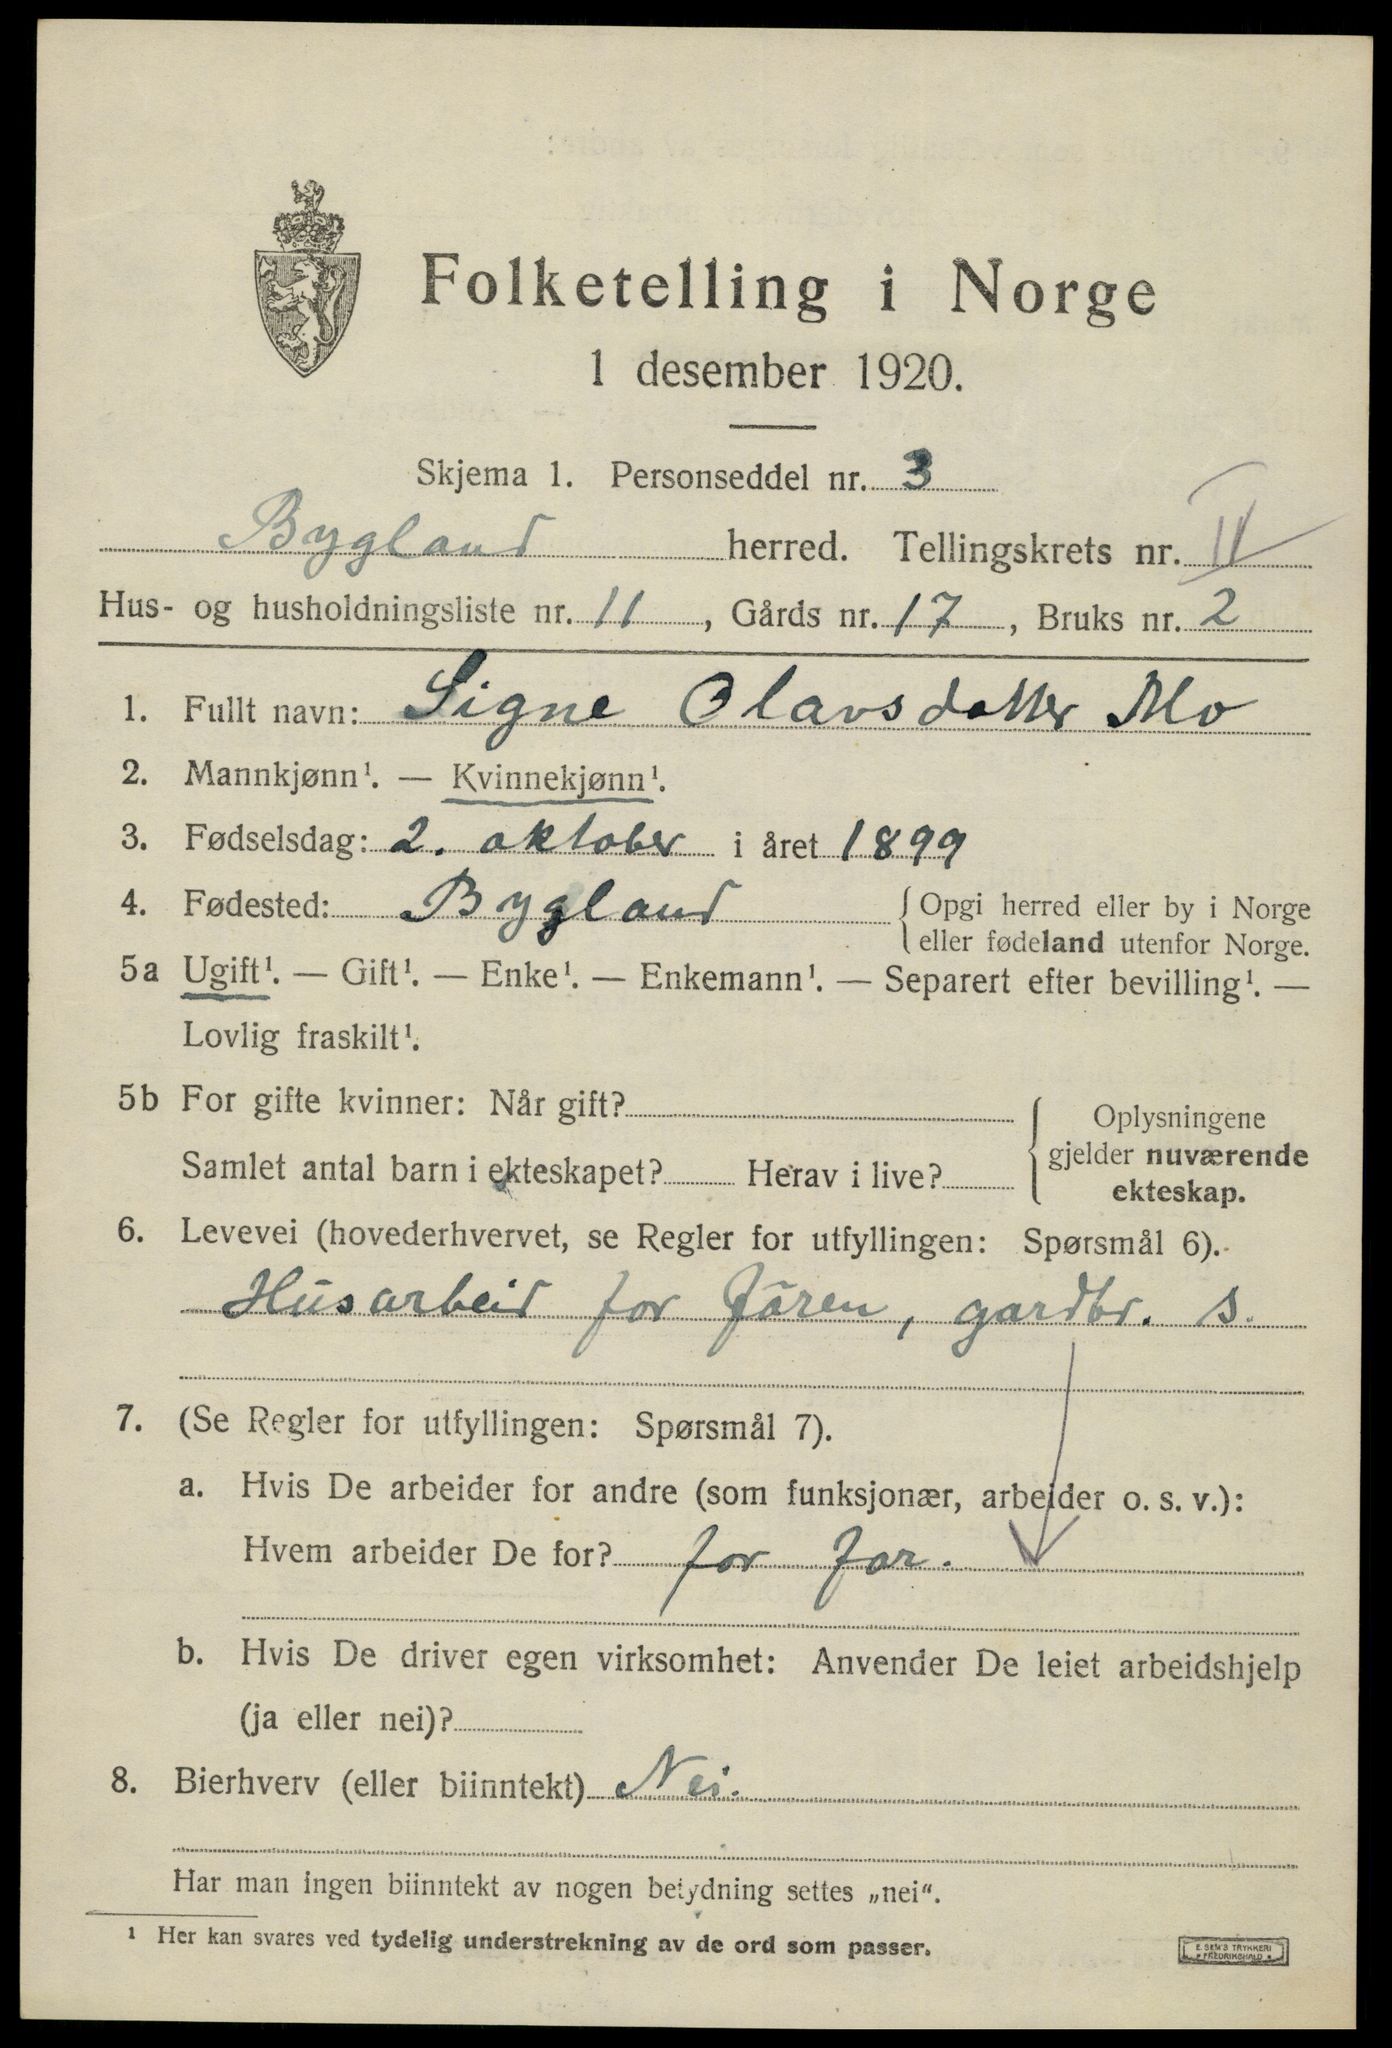 Folketelling i Norge
1 desember 1920.
Skjema 1. Personseddel nr. 3
Bygland herred. Tellingskrets nr. II
Hus- og husholdningsliste nr. 11, Gårds nr. 17, Bruks nr. 2
1. Fullt navn: Signe Olavsdatter Mo
2. Mannkjønn¹. — Kvinnekjønn¹.
3. Fødselsdag: 2. oktober i året 1899
4. Fødested: Bygland {Opgi herred eller by i Norge
eller fødeland utenfor Norge.
5a Ugift¹. — Gift¹. — Enke¹. — Enkemann¹. — Separert efter bevilling¹. —
Lovlig fraskilt¹.
5b For gifte kvinner: Når gift?
Samlet antal barn i ekteskapet? Herav i live?
{Oplysningene
gjelder nuværende
ekteskap.
6. Levevei (hovederhvervet, se Regler for utfyllingen: Spørsmål 6).
Husarbeid for fåren, gardbr. s.
7. (Se Regler for utfyllingen: Spørsmål 7).
a. Hvis De arbeider for andre (som funksjonær, arbeider o. s. v.):
Hvem arbeider De for? for far.
b. Hvis De driver egen virksomhet: Anvender De leiet arbeidshjelp
(ja eller nei)?
8. Bierhverv (eller biinntekt) Nei.
Har man ingen biinntekt av nogen betydning settes „nei“.
¹ Her kan svares ved tydelig understrekning av de ord som passer.
E. SEM'S TRYKKERI
FREDRIKSHALD